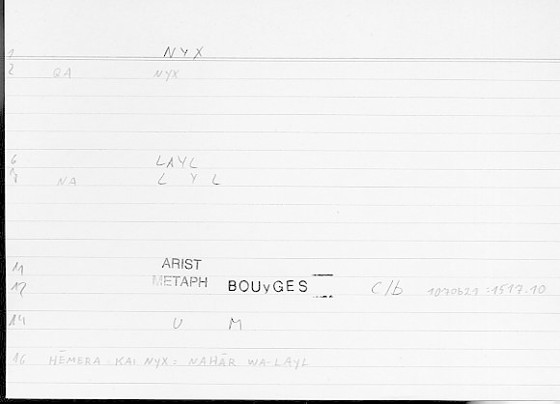 1 NYX
2 QA NYX
6 LAYL
NA L Y L
11 ARIST
12 METAPH BOUyGES C/b 1070b21:1517.10
14 U M
16 HĒMERA KAI NYX = NAHĀR WA-LAYL